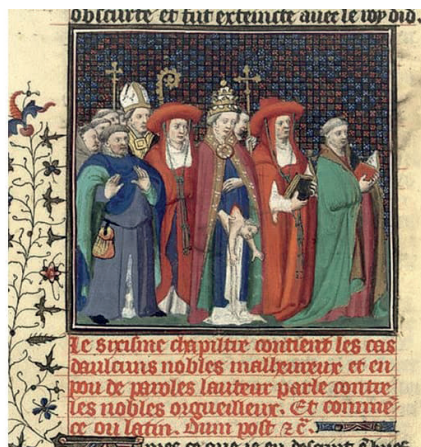 obscurte et fut exteincte auec le roy did.
Le sixisme chapiltre contient les cas
daulcuns nobles malheureux et en
pou de paroles lauteur parle contre
les nobles orgueilleux. Et comme
ce ou latin. Dum post &c.